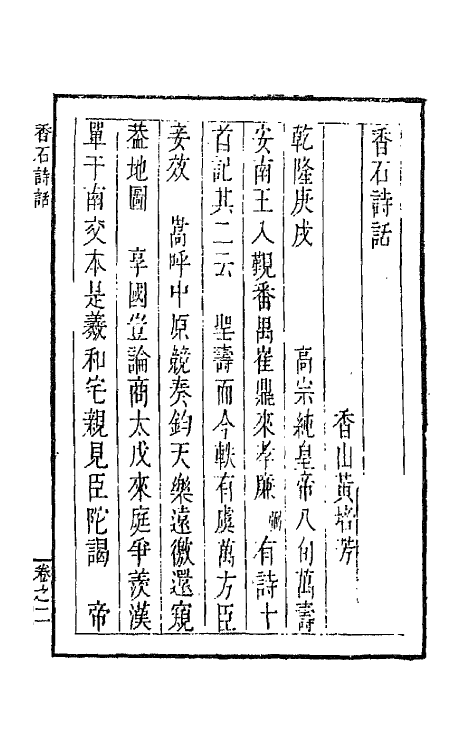 香石詩話
香山黃培芳
乾隆庚戌　高宗純皇帝八旬萬壽
安南王入覲番禺崔鼎來孝廉弼有詩十
首記其二云　聖壽而今軼有虞萬方臣
妾效　嵩呼中原競奏鈞天樂遠徼還窺
葢地圖　享國豈論商太戊來庭爭羨漢
單于南交本是羲和宅親見臣陀謁　帝
香石詩話
卷之二